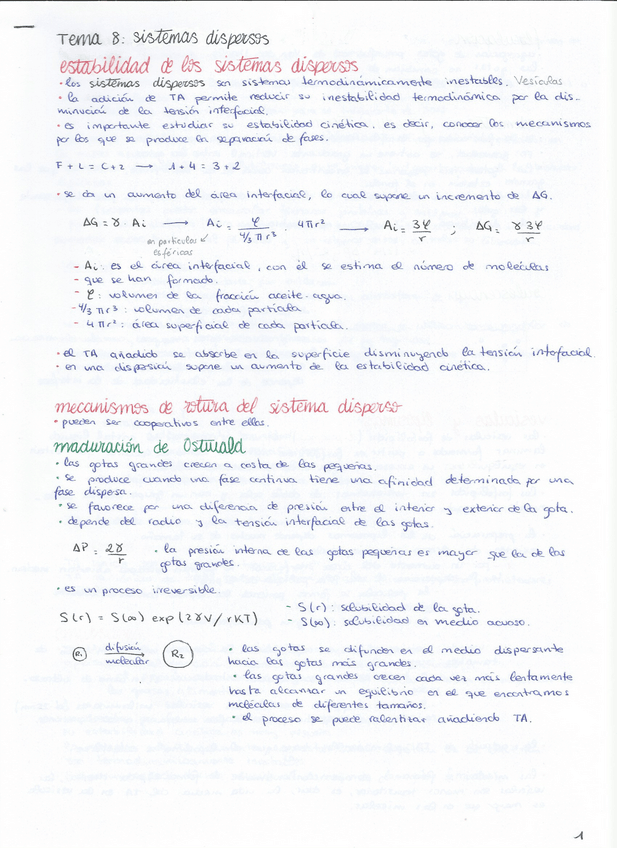 Tema 8: sistemas dispersos
estabilidad de los sistemas dispersos
· los sistemas dispersos son sistemas termodinámicamente inestables. Vesículas
· la adición de TA permite reducir su inestabilidad termodinámica por la dis-
minución de la tensión interfacial.
· es importante estudiar su estabilidad cinética, es decir, conocer los mecanismos
por los que se produce la separación de fases.
F + L = C + 2 → 1 + 4 = 3 + 2
· se da un aumento del área interfacial, lo cual supone un incremento de ΔG.
ΔG = γ Ai → Ai = φ / 4/3 π r³ · 4πr² → Ai = 3φ / r ; ΔG = γ 3φ / r
en partículas
esféricas
- Ai: es el área interfacial, con él se estima el número de moléculas
- que se han formado.
- φ: volumen de la fracción aceite-agua.
- 4/3 πr³: volumen de cada partícula.
- 4πr²: área superficial de cada partícula.
· el TA añadido se absorbe en la superficie disminuyendo la tensión interfacial.
· en una dispersión supone un aumento de la estabilidad cinética.
mecanismos de rotura del sistema disperso
· pueden ser cooperativos entre ellos.
maduración de Ostwald
· las gotas grandes crecen a costa de las pequeñas.
· se produce cuando una fase continua tiene una afinidad determinada por una
fase dispersa.
· se favorece por una diferencia de presión entre el interior y exterior de la gota.
· depende del radio y la tensión interfacial de las gotas.
ΔP = 2γ / r · la presión interna de las gotas pequeñas es mayor que la de las
gotas grandes.
· es un proceso irreversible.
S(r) = S(∞) exp(2γV/rKT)
- S(r): solubilidad de la gota.
- S(∞): solubilidad en medio acuoso.
R₁ difusión molecular → R₂
· las gotas se difunden en el medio dispersante
hacia las gotas más grandes.
· las gotas grandes crecen cada vez más lentamente
hasta alcanzar un equilibrio en el que encontramos
moléculas de diferentes tamaños.
· el proceso se puede ralentizar añadiendo TA.
1